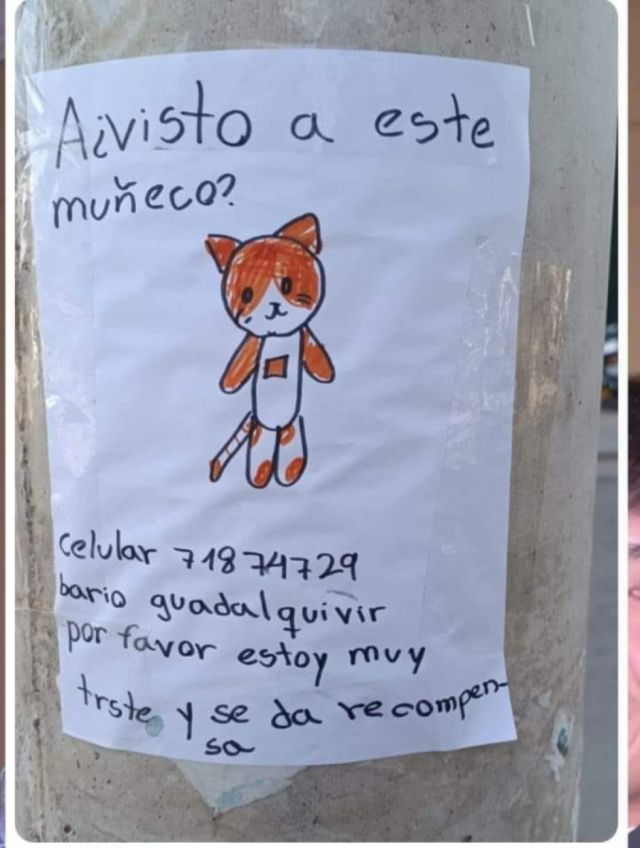 Aivisto a este
muñeco?
celular 71874729
bario guadalquivir
por favor estoy muy
trste y se da recompen-
sa